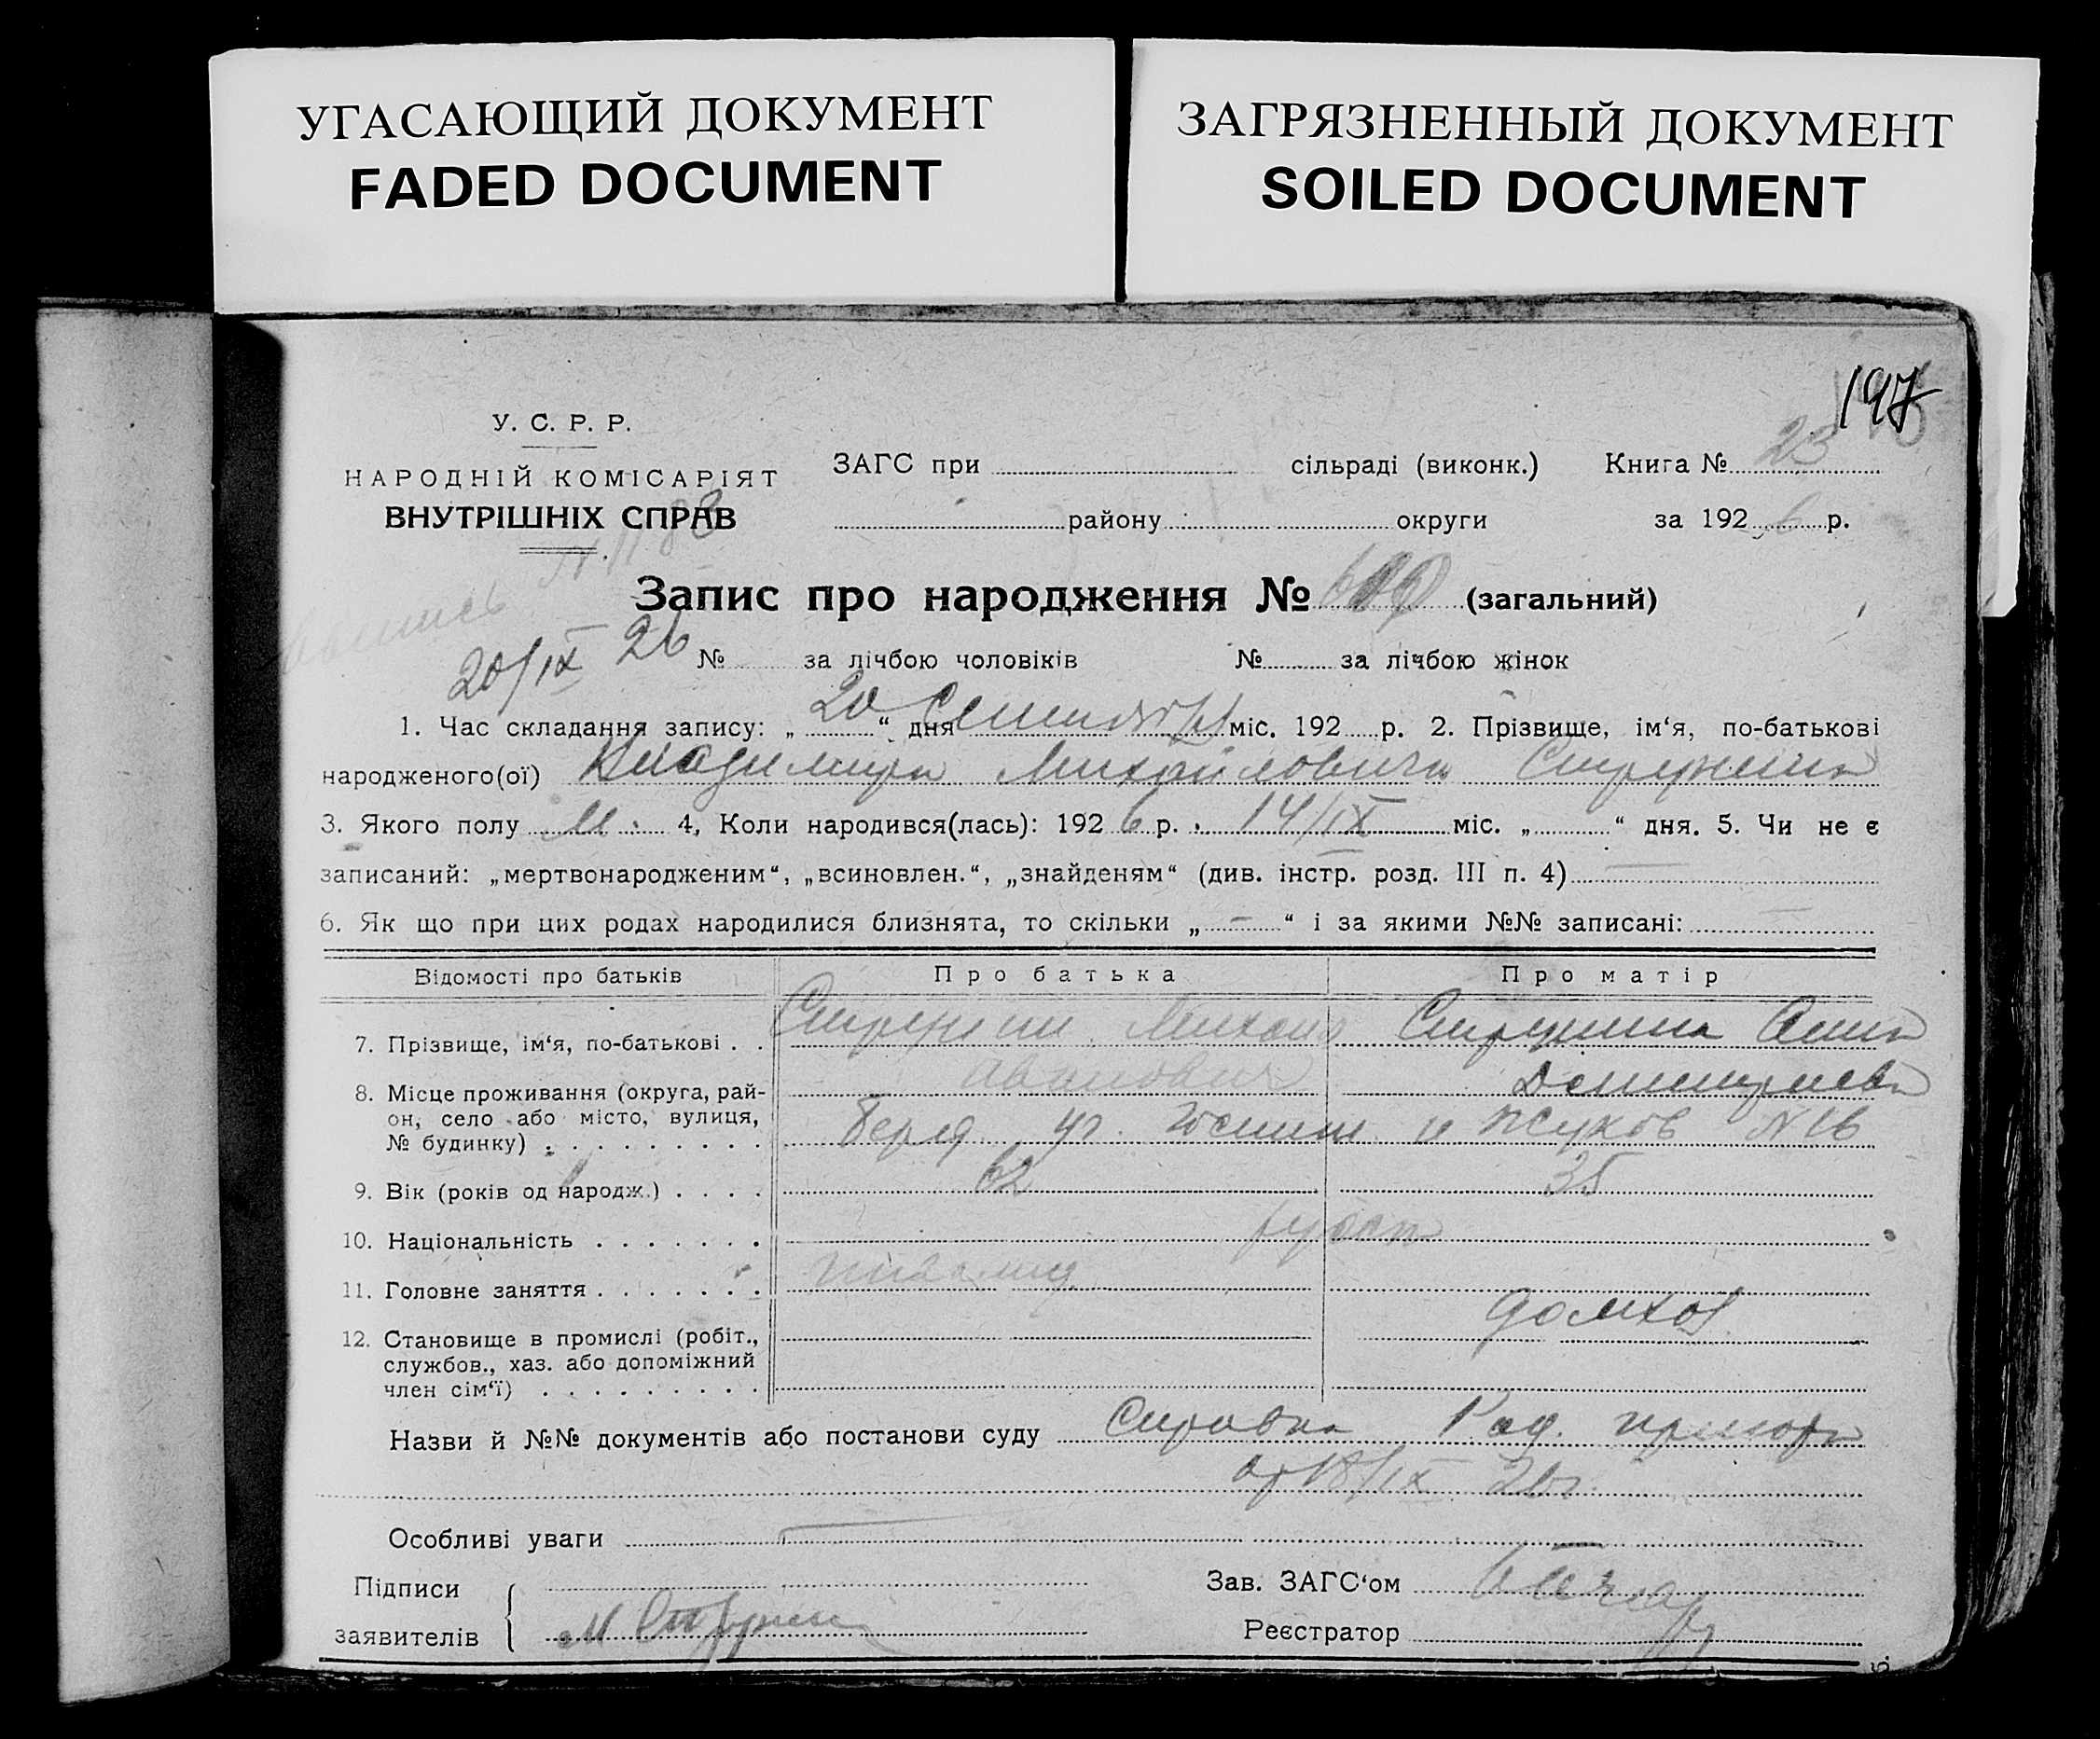 УГАСАЮЩИЙ ДОКУМЕНТ
FADED DOCUMENT
ЗАГРЯЗНЕННЫЙ ДОКУМЕНТ
SOILED DOCUMENT
197
У. С. Р. Р.
НАРОДНІЙ КОМІСАРІЯТ
ВНУТРІШНІХ СПРАВ
ЗАГС при сільраді (виконк.) Книга № 23
району округи за 192 6 р.
Запис про народження № (загальний)
20/IX 26 № за лічбою чоловіків № за лічбою жінок
1. Час складання запису: „ 20 “ дня Сентября міс. 192 р. 2. Прізвище, ім‘я, по-батькові
народженого(ої) Владимира Михайловича
3. Якого полу М. 4, Коли народився(лась): 192 6 р. 14/IX міс. „ “ дня. 5. Чи не є
записаний: „мертвонародженим“, „всиновлен.“, „знайденям“ (див. інстр. розд. III п. 4) —
6. Як що при цих родах народилися близнята, то скільки „ — “ і за якими №№ записані: —
Відомості про батьків Про батька Про матір
7. Прізвище, ім‘я, по-батькові . . Михаил Анна
Иванович Дмитриевна
8. Місце проживання (округа, рай-
он, село або місто, вулиця,
№ будинку) . . . . . . . . . уг. и Жуков N 16
9. Вік (років од народж.) . . . . 62 35
10. Національність . . . . . . .
11. Головне заняття . . . . . . . инвалид
домхоз
12. Становище в промислі (робіт.,
службов., хаз. або допоміжний
член сім‘ї) . . . . . . . . .
Назви й №№ документів або постанови суду Справка Род. приюта
от 18/IX 26 г.
Особливі уваги —
Підписи
заявителів
Зав. ЗАГС‘ом
Реєстратор